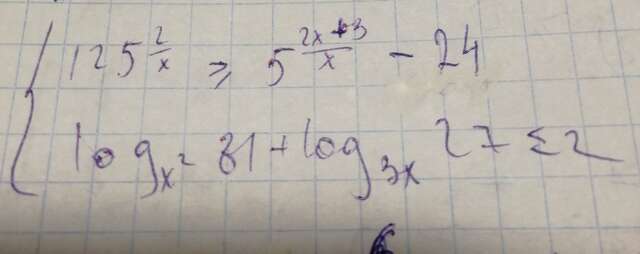 125^{2/x} ≥ 5^{(2x+3)/x} - 24
log_{x²} 81 + log_{3x} 27 ≤ 2